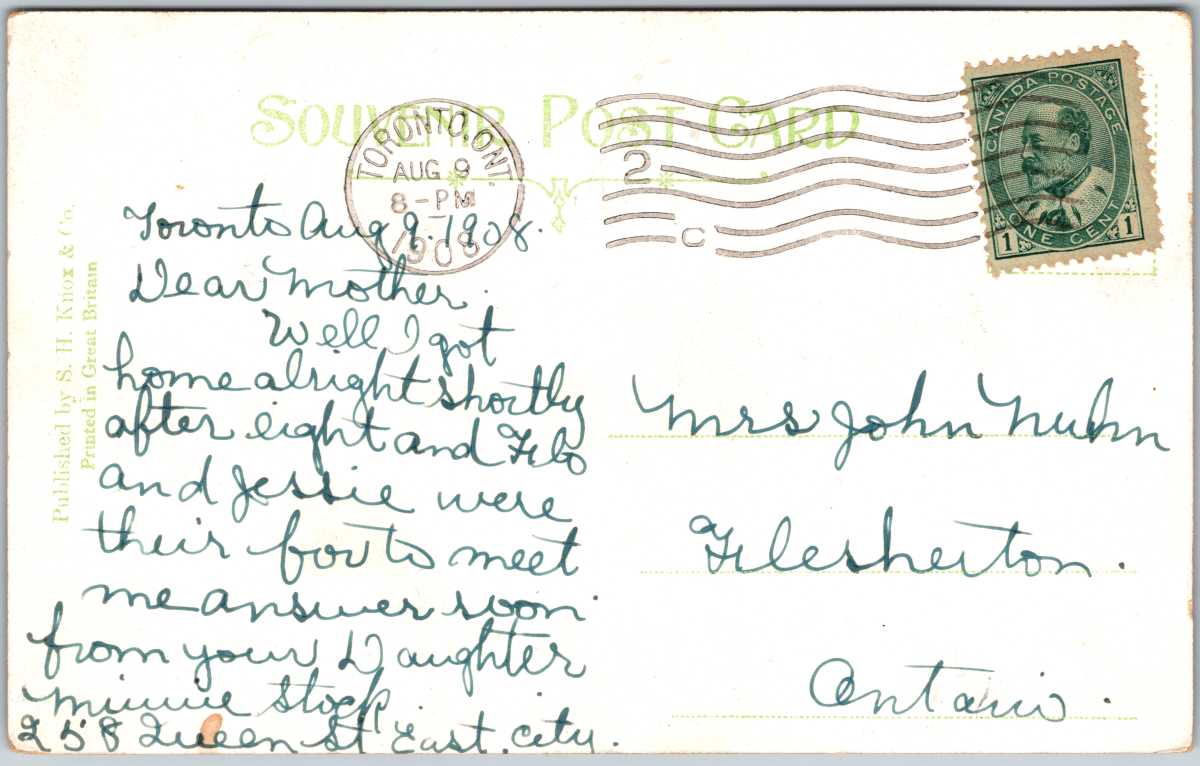 SOUVENIR POST CARD
TORONTO, ONT.
AUG 9
8-PM
1908
2
C
CANADA POSTAGE
1 ONE CENT 1
Published by S. H. Knox & Co.
Printed in Great Britain
Toronto Aug 9. 1908.
Dear Mother.
Well I got
home alright shortly
after eight and
and Jessie were
their to meet
me answer soon
from your Daughter
Minnie Stock
258 Queen St East. City.
Mrs John Nuhn
Flesherton.
Ontario.